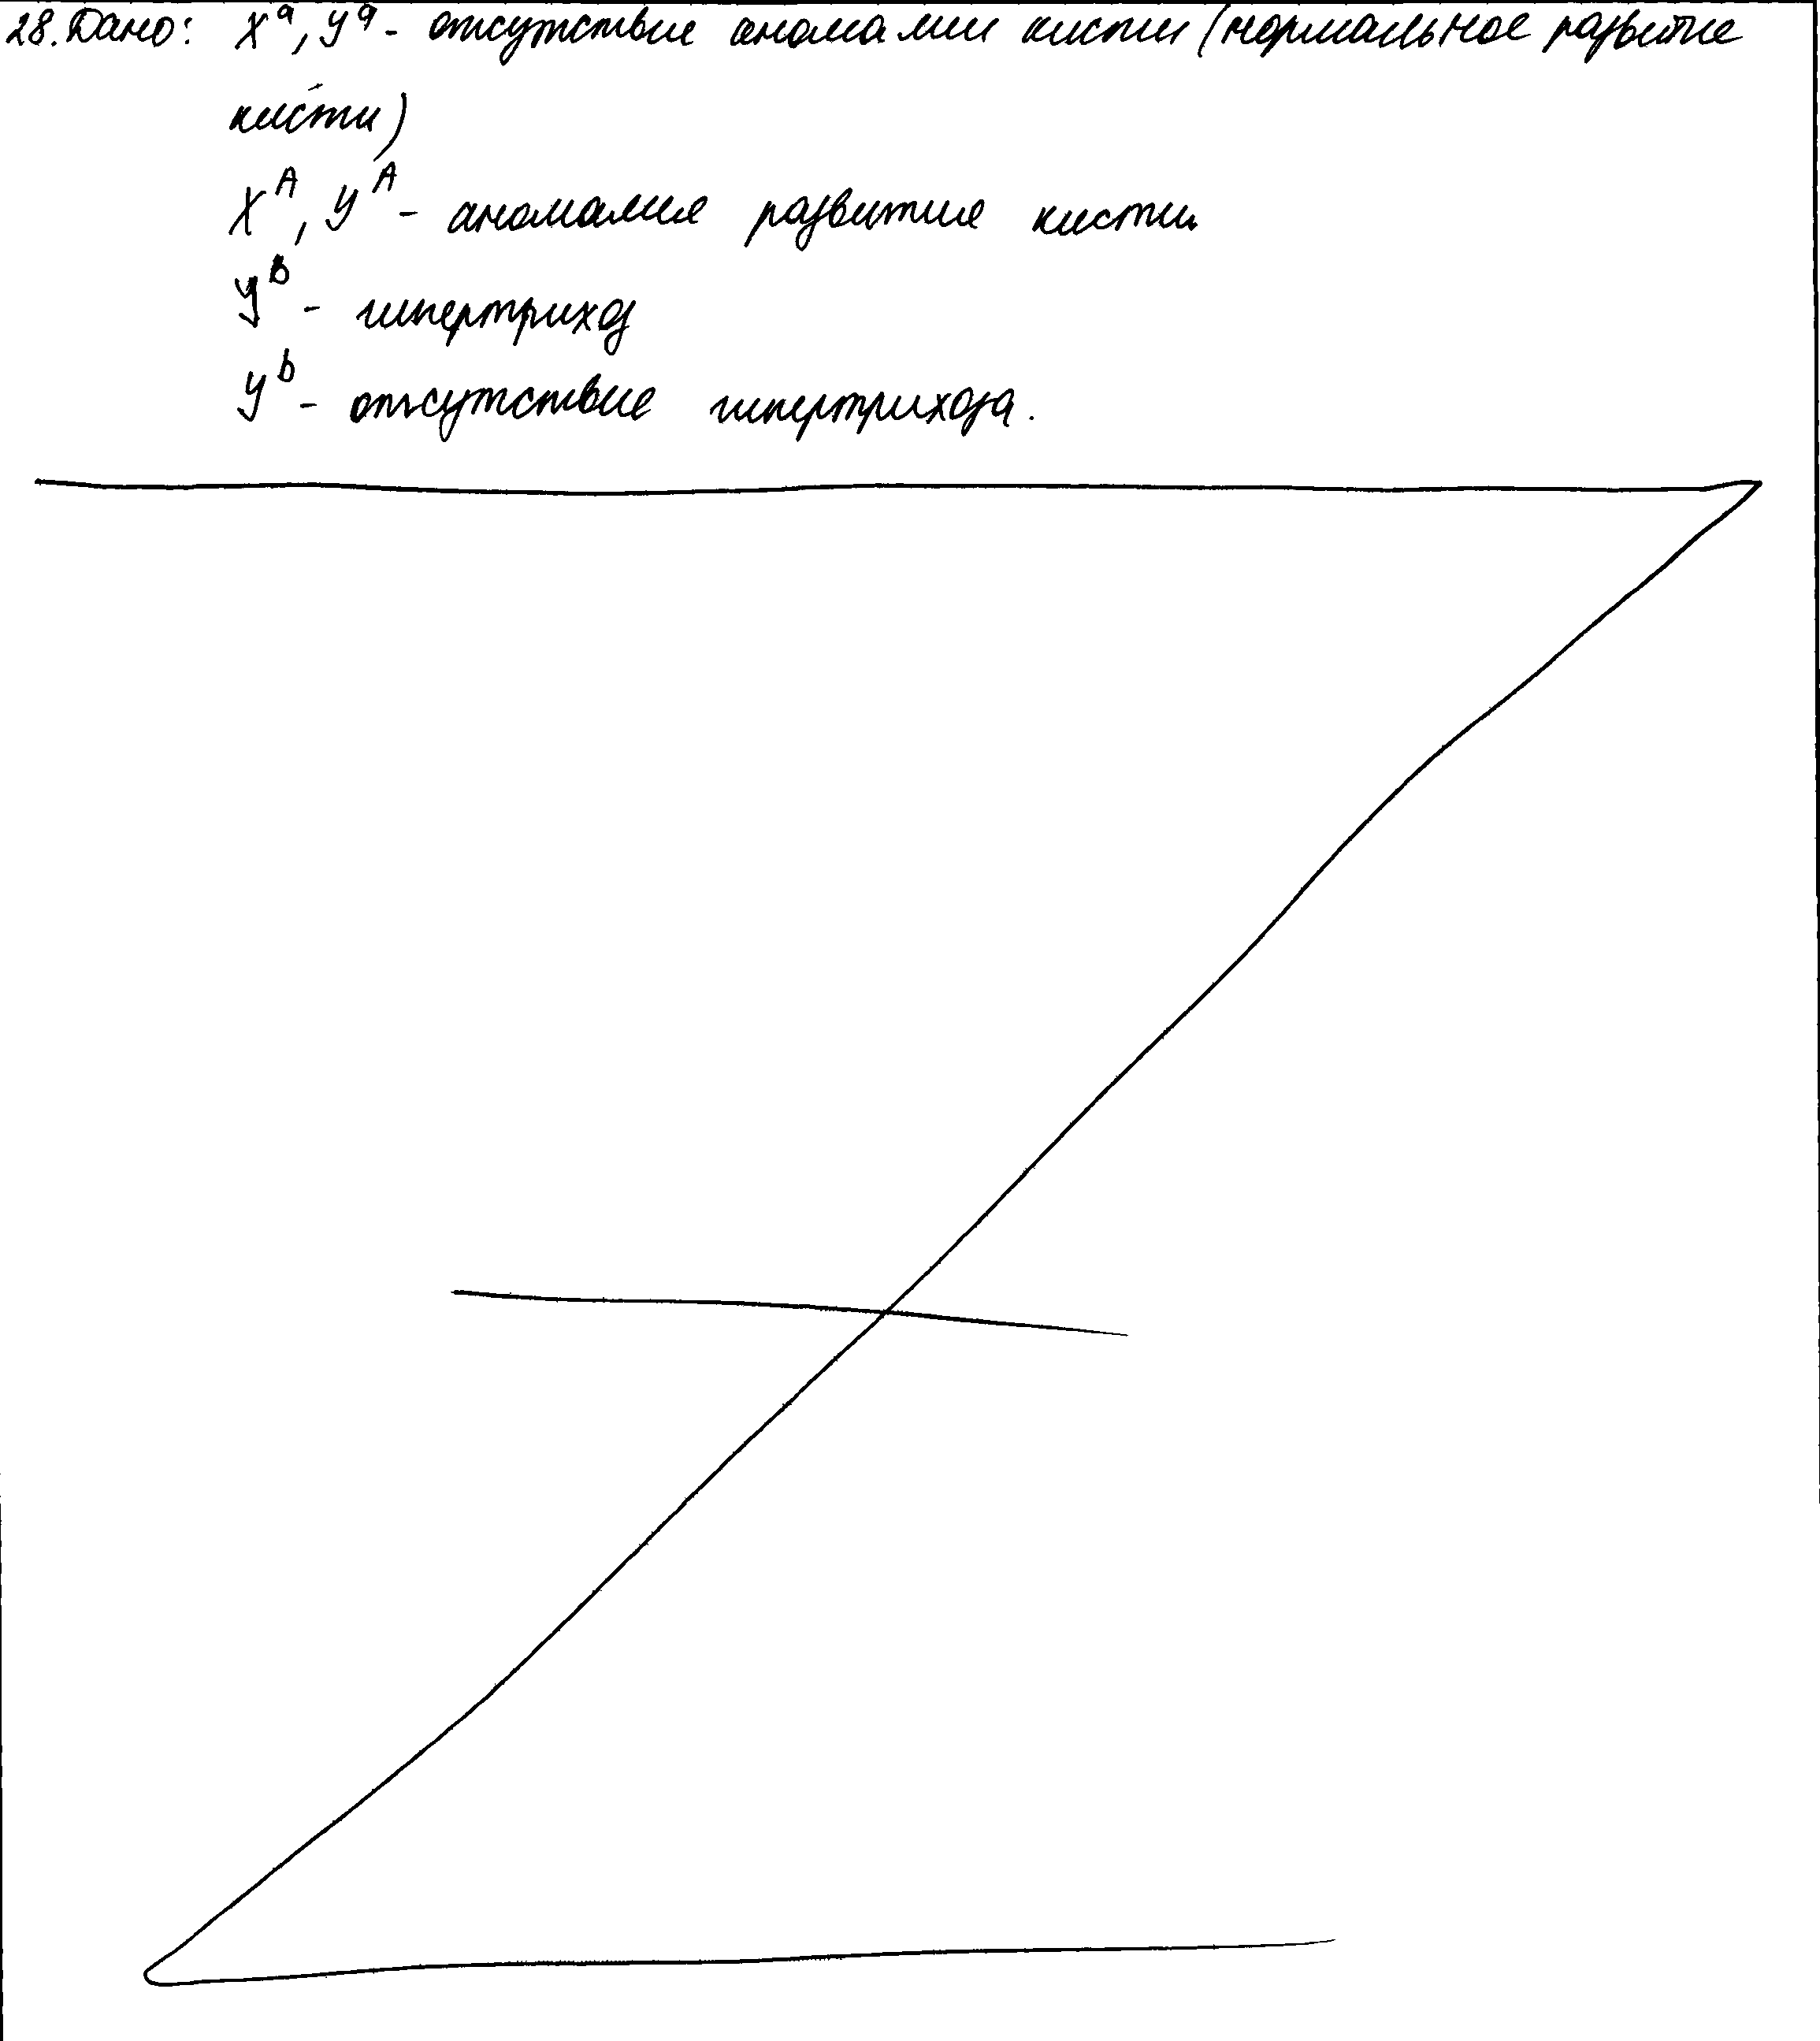 28. Дано: Xᵃ, Yᵃ - отсутствие аномалии кисти (нормальное развитие
кисти)
Xᴬ, Yᴬ - аномалия развития кисти
Yᴮ - гипертрихоз
Yᵇ - отсутствие гипертрихоза.